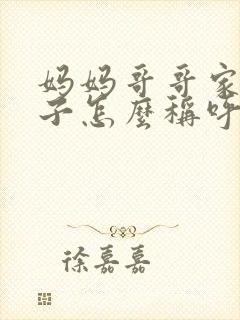 妈妈哥哥家
子怎麽稱呼
徐嘉嘉